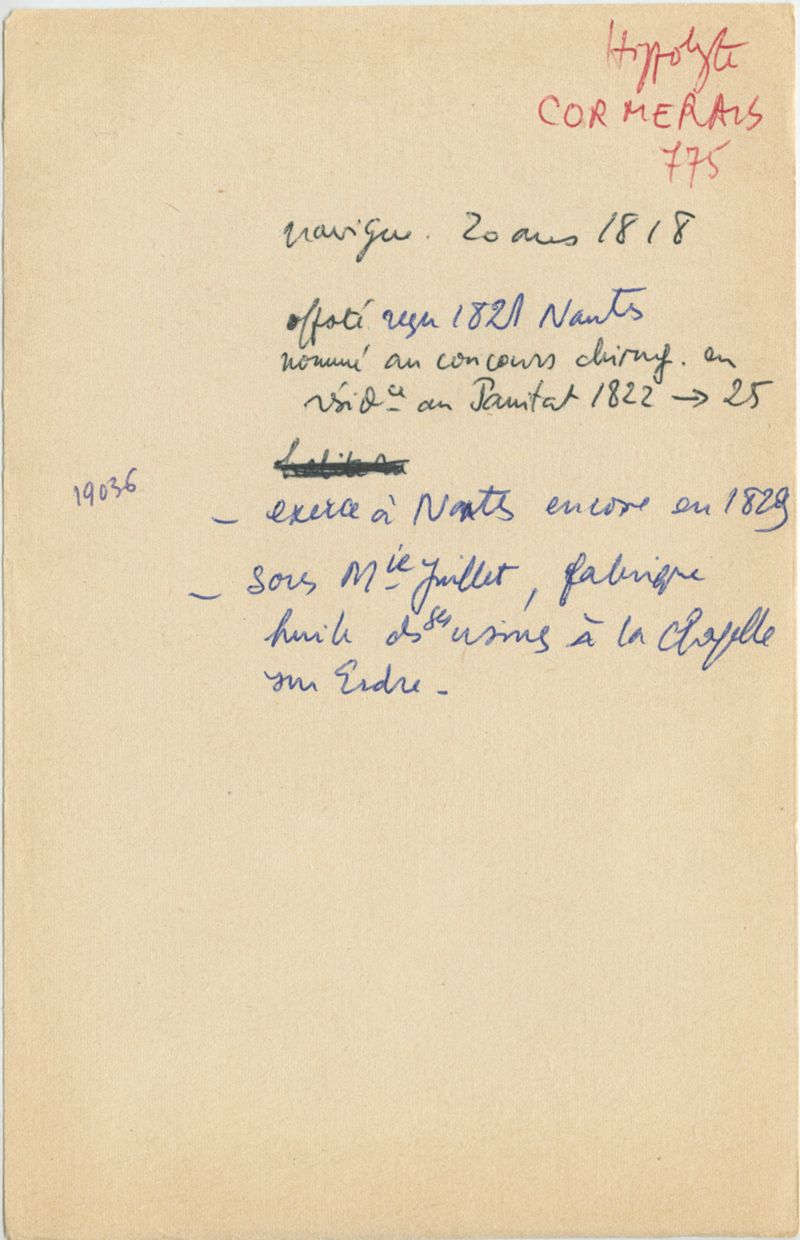 Hippolyte
CORMERAIS
775
navigue. 20 ans 1818
reçu 1821 Nantes
nommé au concours chirurg. en
résid^ce au Sanitat 1822 → 25
19036
- exerce à Nantes encore en 1829
- Sous M^ie Juillet, fabrique
huile ds ses usines à la Chapelle
sur Erdre -